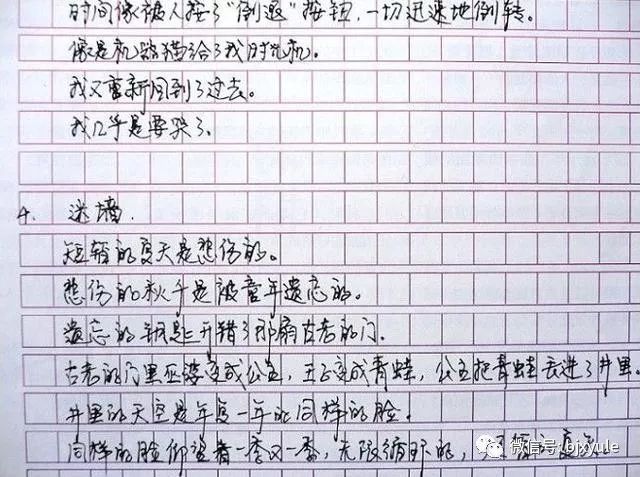 时间像被人按了“倒退”按钮,一切迅速地倒转。
像是机器猫给了我时光机。
我又重新回到了过去。
我几乎是要哭了。
4. 迷墙.
短暂的夏天是悲伤的。
悲伤的秋千是被童年遗忘的。
遗忘的钥匙开错了那扇古老的门.
古老的门里巫婆变成公主,王子变成青蛙,公主把青蛙丢进了井里.
井里的天空是年复一年的同样的脸。
同样的脸仰望着一季又一季,无限循环的,
微信号: ojxyule